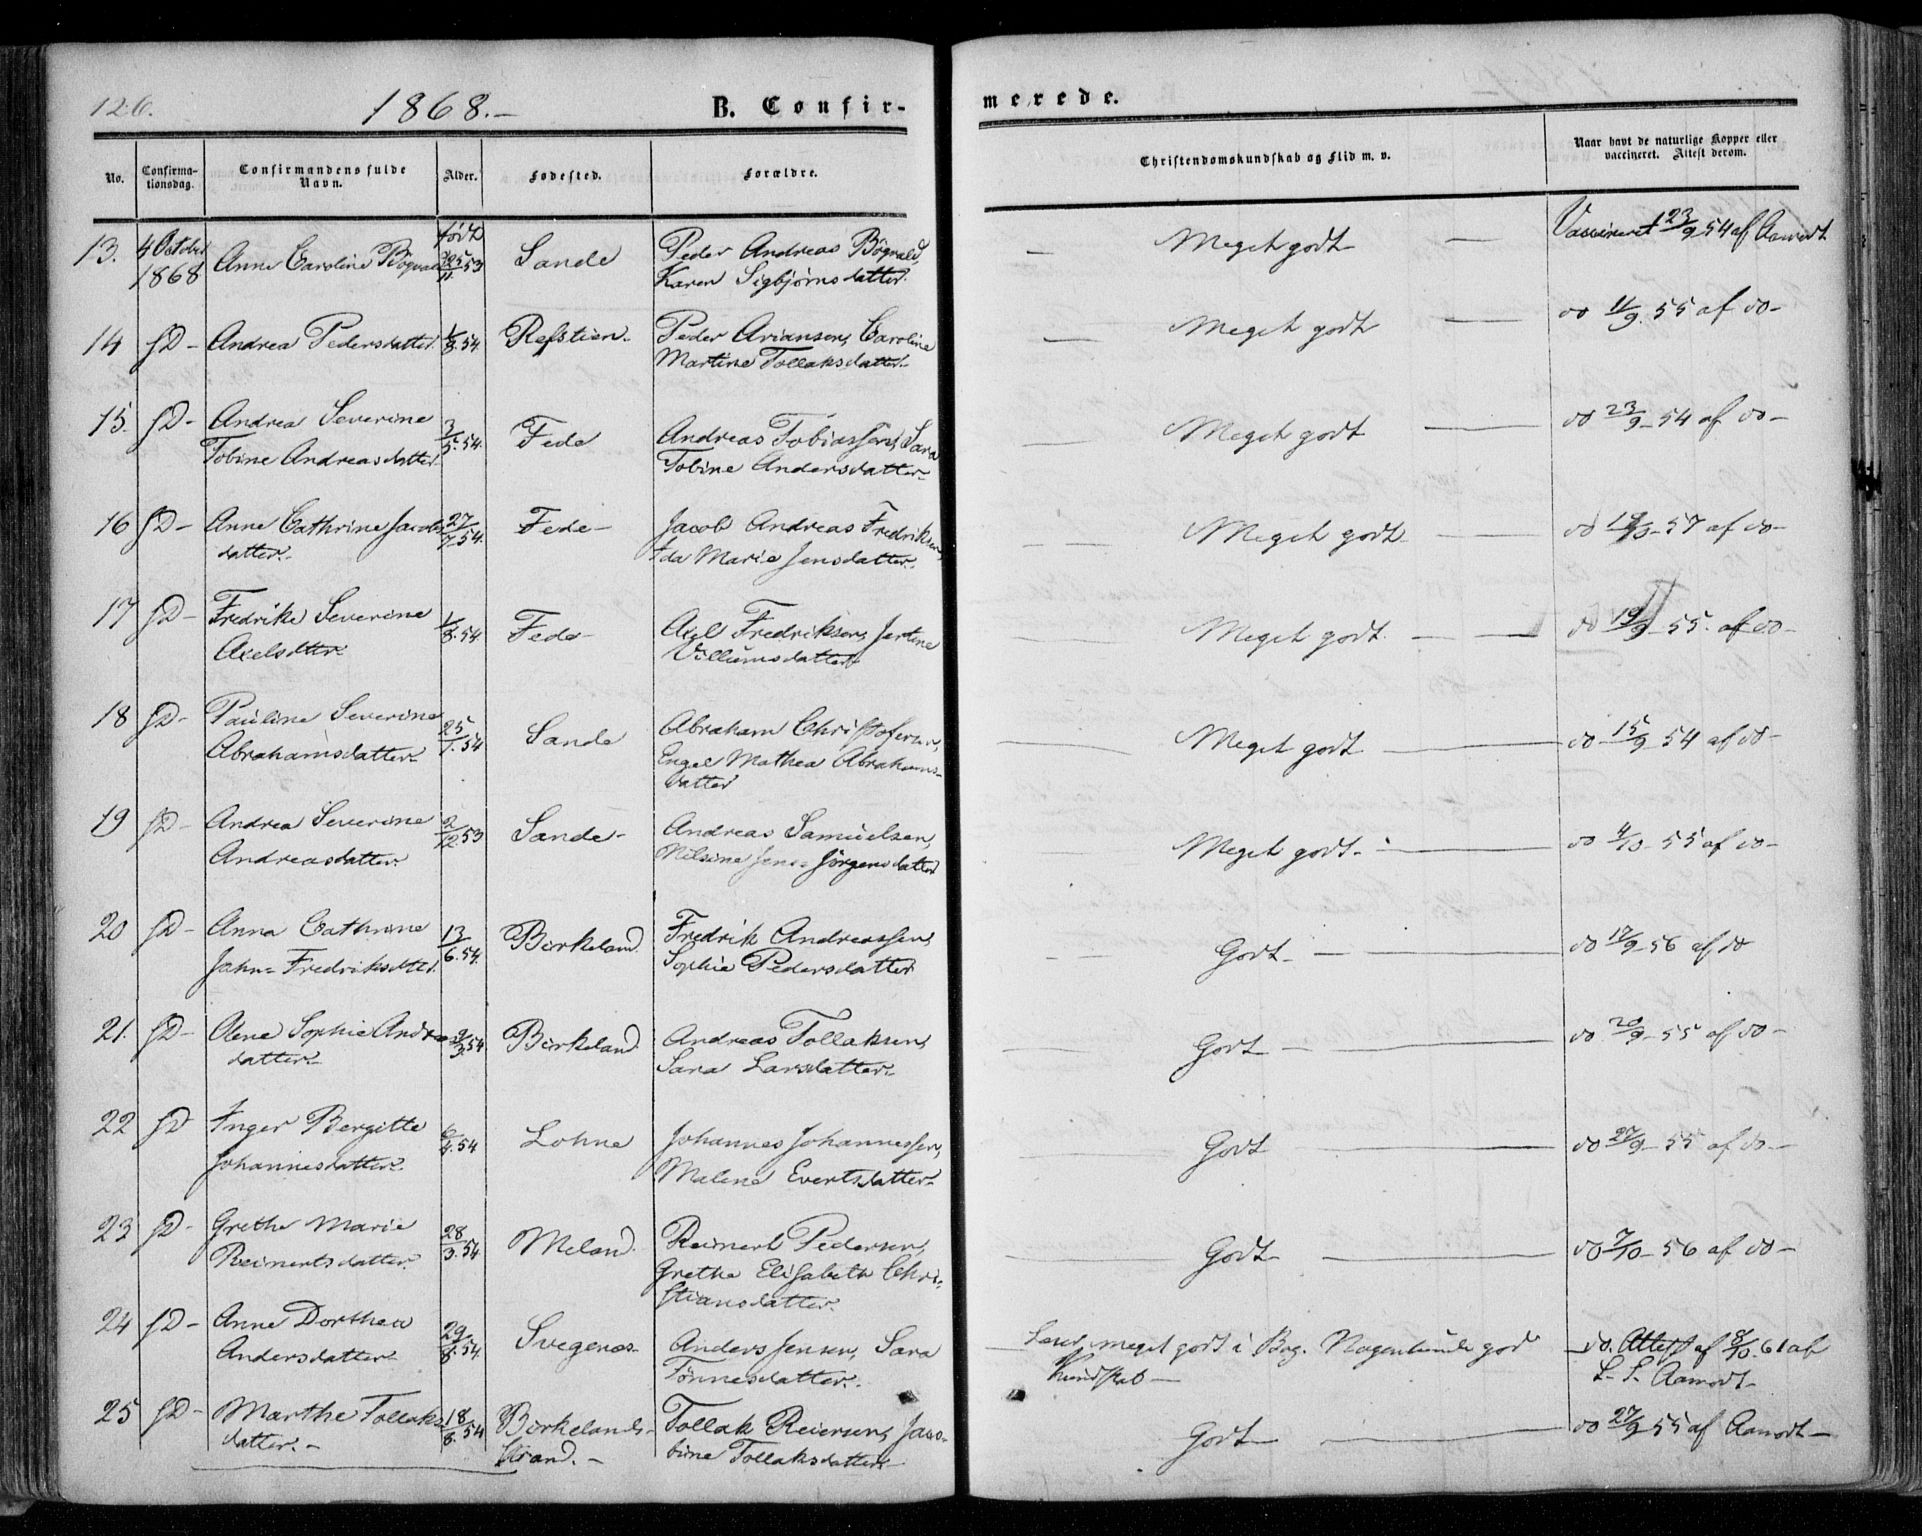 126. 1868.- B. Confir-
merede.
No. Confirma-tionsdag. Confirmandens fulde Navn. Alder. Fødested. Forældre. Christendomskundskab og Flid m. v. Naar havt de naturlige Kopper eller vaccineret. Attest derom.
13. 4 October født Peder Andreas Bøgvald, — Meget godt — Vaccineret 23/9 54 af Aamodt
1868 Anne Caroline Bøgvald 25/11 53 Sande Karen Sigbjørnsdatter.
14 Andrea Pedersdatter 1/8. 54. Refstien- Peder Ariansen, Caroline — Meget godt — do 11/9. 55 af do-
Martine Tollaksdatter-
15. Andrea Severine 3/5. 54. Fede Andreas Tobiassen, Sara — Meget godt — do 23/9- 54 af do-
Tobine Andreasdatter Tobine Andersdatter-
16 Anne Cathrine Jacobs 27/7 54. Fede- Jacob Andreas Fredriksen, — Meget godt — do 57 af do-
datter- Ida Marie Jensdatter.
17 Fredrike Severine 1/8. 54 Fede- Axel Fredriksen, Jertine — Meget godt. — do 19/9- 55. af do-
Axelsdtter Villumsdatter
18 Pauline Severine 25/1. 54 Sande Abraham Christofersen, — Meget godt — do 15/9 54 af do-
Abrahamsdatter- Engel Mathea Abrahams-
datter
19 Andrea Severine 2/12 53 Sande- Andreas Samuelsen, — Meget godt- — do 4/10- 55 af do-
Andreasdatter Nilsine Jens= Jörgensdatter
20 Anna Cathrine 13/6. 54. Birkeland. Fredrik Andreassen, Godt- — do 17/9- 56 af do
John= Fredriksdtter. Sophie Pedersdatter
21. Olene Sophie Andreas 54 Birkeland Andreas Tollaksen, — Godt — do 20/9- 55 af do-
datter- Sara Larsdatter-
22 Inger Bergitte 6/4. 54 Lohne Johannes Johannessen, — Godt — do 27/9- 55 af do-
Johannesdatter- Malene Evertsdatter-
23 Grethe Marie 28/3. 54. Meland. Reinert Pedersen, — Godt — do 7/10- 56 af do-
Reinertsdatter. Grethe Elisabeth Chri-
stiansdatter-
24 Anne Dorthea 29/8. 54. Svegenæs- Anders Jensen, Sara Læser meget godt i Bog. Nogenlunde god do. Attest af 8/10. 61 af
Andersdatter- Tønnesdatter. Kundskab — Aamodt-
25 Marthe Tollaks 18/8. 54 Birkelands- Tollak Reiersen, Jaco- Godt — do 27/9 55 af Aamodt-
datter.- Strand.- bine Tollaksdatter